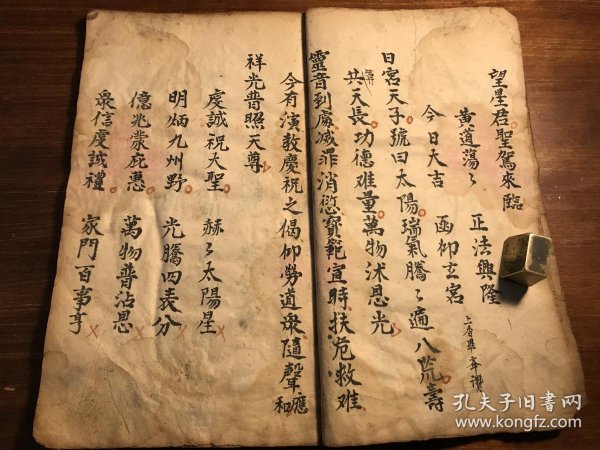 望星君聖駕來臨
黄道蕩〻 正法興隆
今日天吉 函仰玄宮 上香畢 舉讚
日宮天子號曰太陽瑞氣騰〻遍八荒壽
共天長功德难量萬物沭恩光
靈音到處滅罪消愆寳範宣時扶危救难
今有演教慶祝之偈仰勞道衆隨聲應和
祥光普照天尊
虔誠祝大聖 赫〻太陽星
明炳九州野 光騰四表分
億兆蒙庇惠 萬物普沾恩
衆信虔誠禮 家門百事亨
孔夫子旧书网